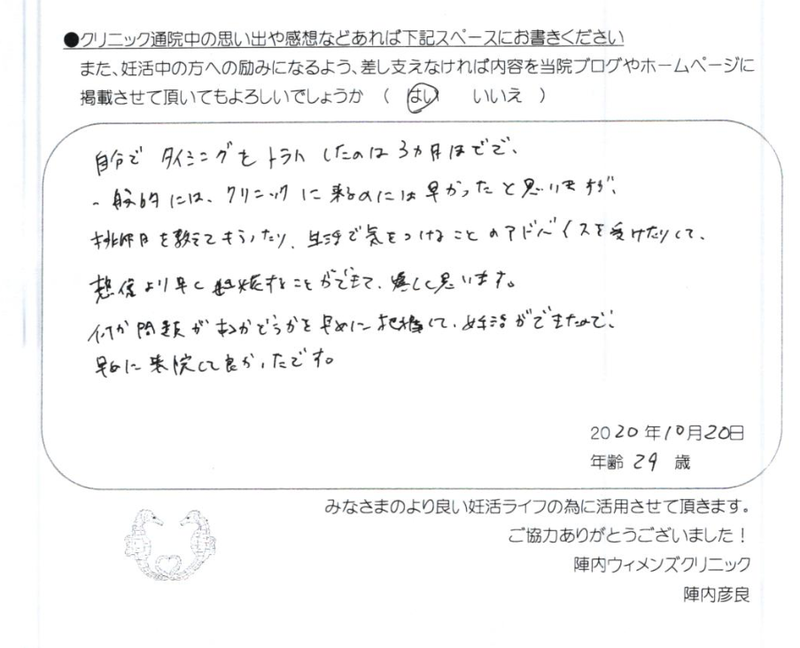 ●クリニック通院中の思い出や感想などあれば下記スペースにお書きください
また、妊活中の方への励みになるよう、差し支えなければ内容を当院ブログやホームページに
掲載させて頂いてもよろしいでしょうか （ はい いいえ ）
自分で タイミングを トライ したのは 3ヵ月ほどで、
一般的には、クリニックに来るのには早かったと思いますが、
排卵日を教えてもらったり、生活で気をつけることのアドバイスを受けたりして、
想像より早く妊娠することができて、嬉しく思います。
何か問題があるかどうかを早めに把握して、妊活ができたので、
早めに来院して良かったです。
2020年10月20日
年齢 29 歳
みなさまのより良い妊活ライフの為に活用させて頂きます。
ご協力ありがとうございました！
陣内ウィメンズクリニック
陣内彦良